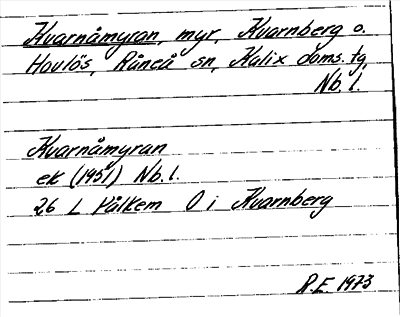 Kvarnåmyran, myr, Kvarnberg o.
Hovlös, Råneå sn, Kalix doms. tg,
Nb. l.
Kvarnåmyran
ek (1951) Nb. l.
26 L Pålkem O i Kvarnberg
R.E. 1973